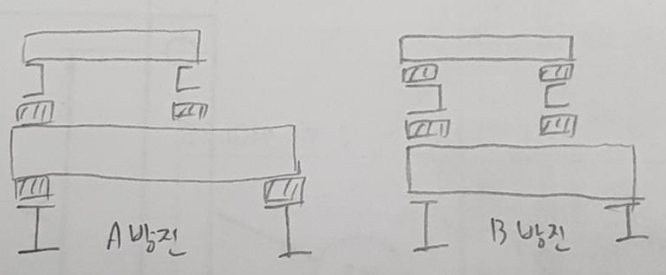 A 방진
B 방진